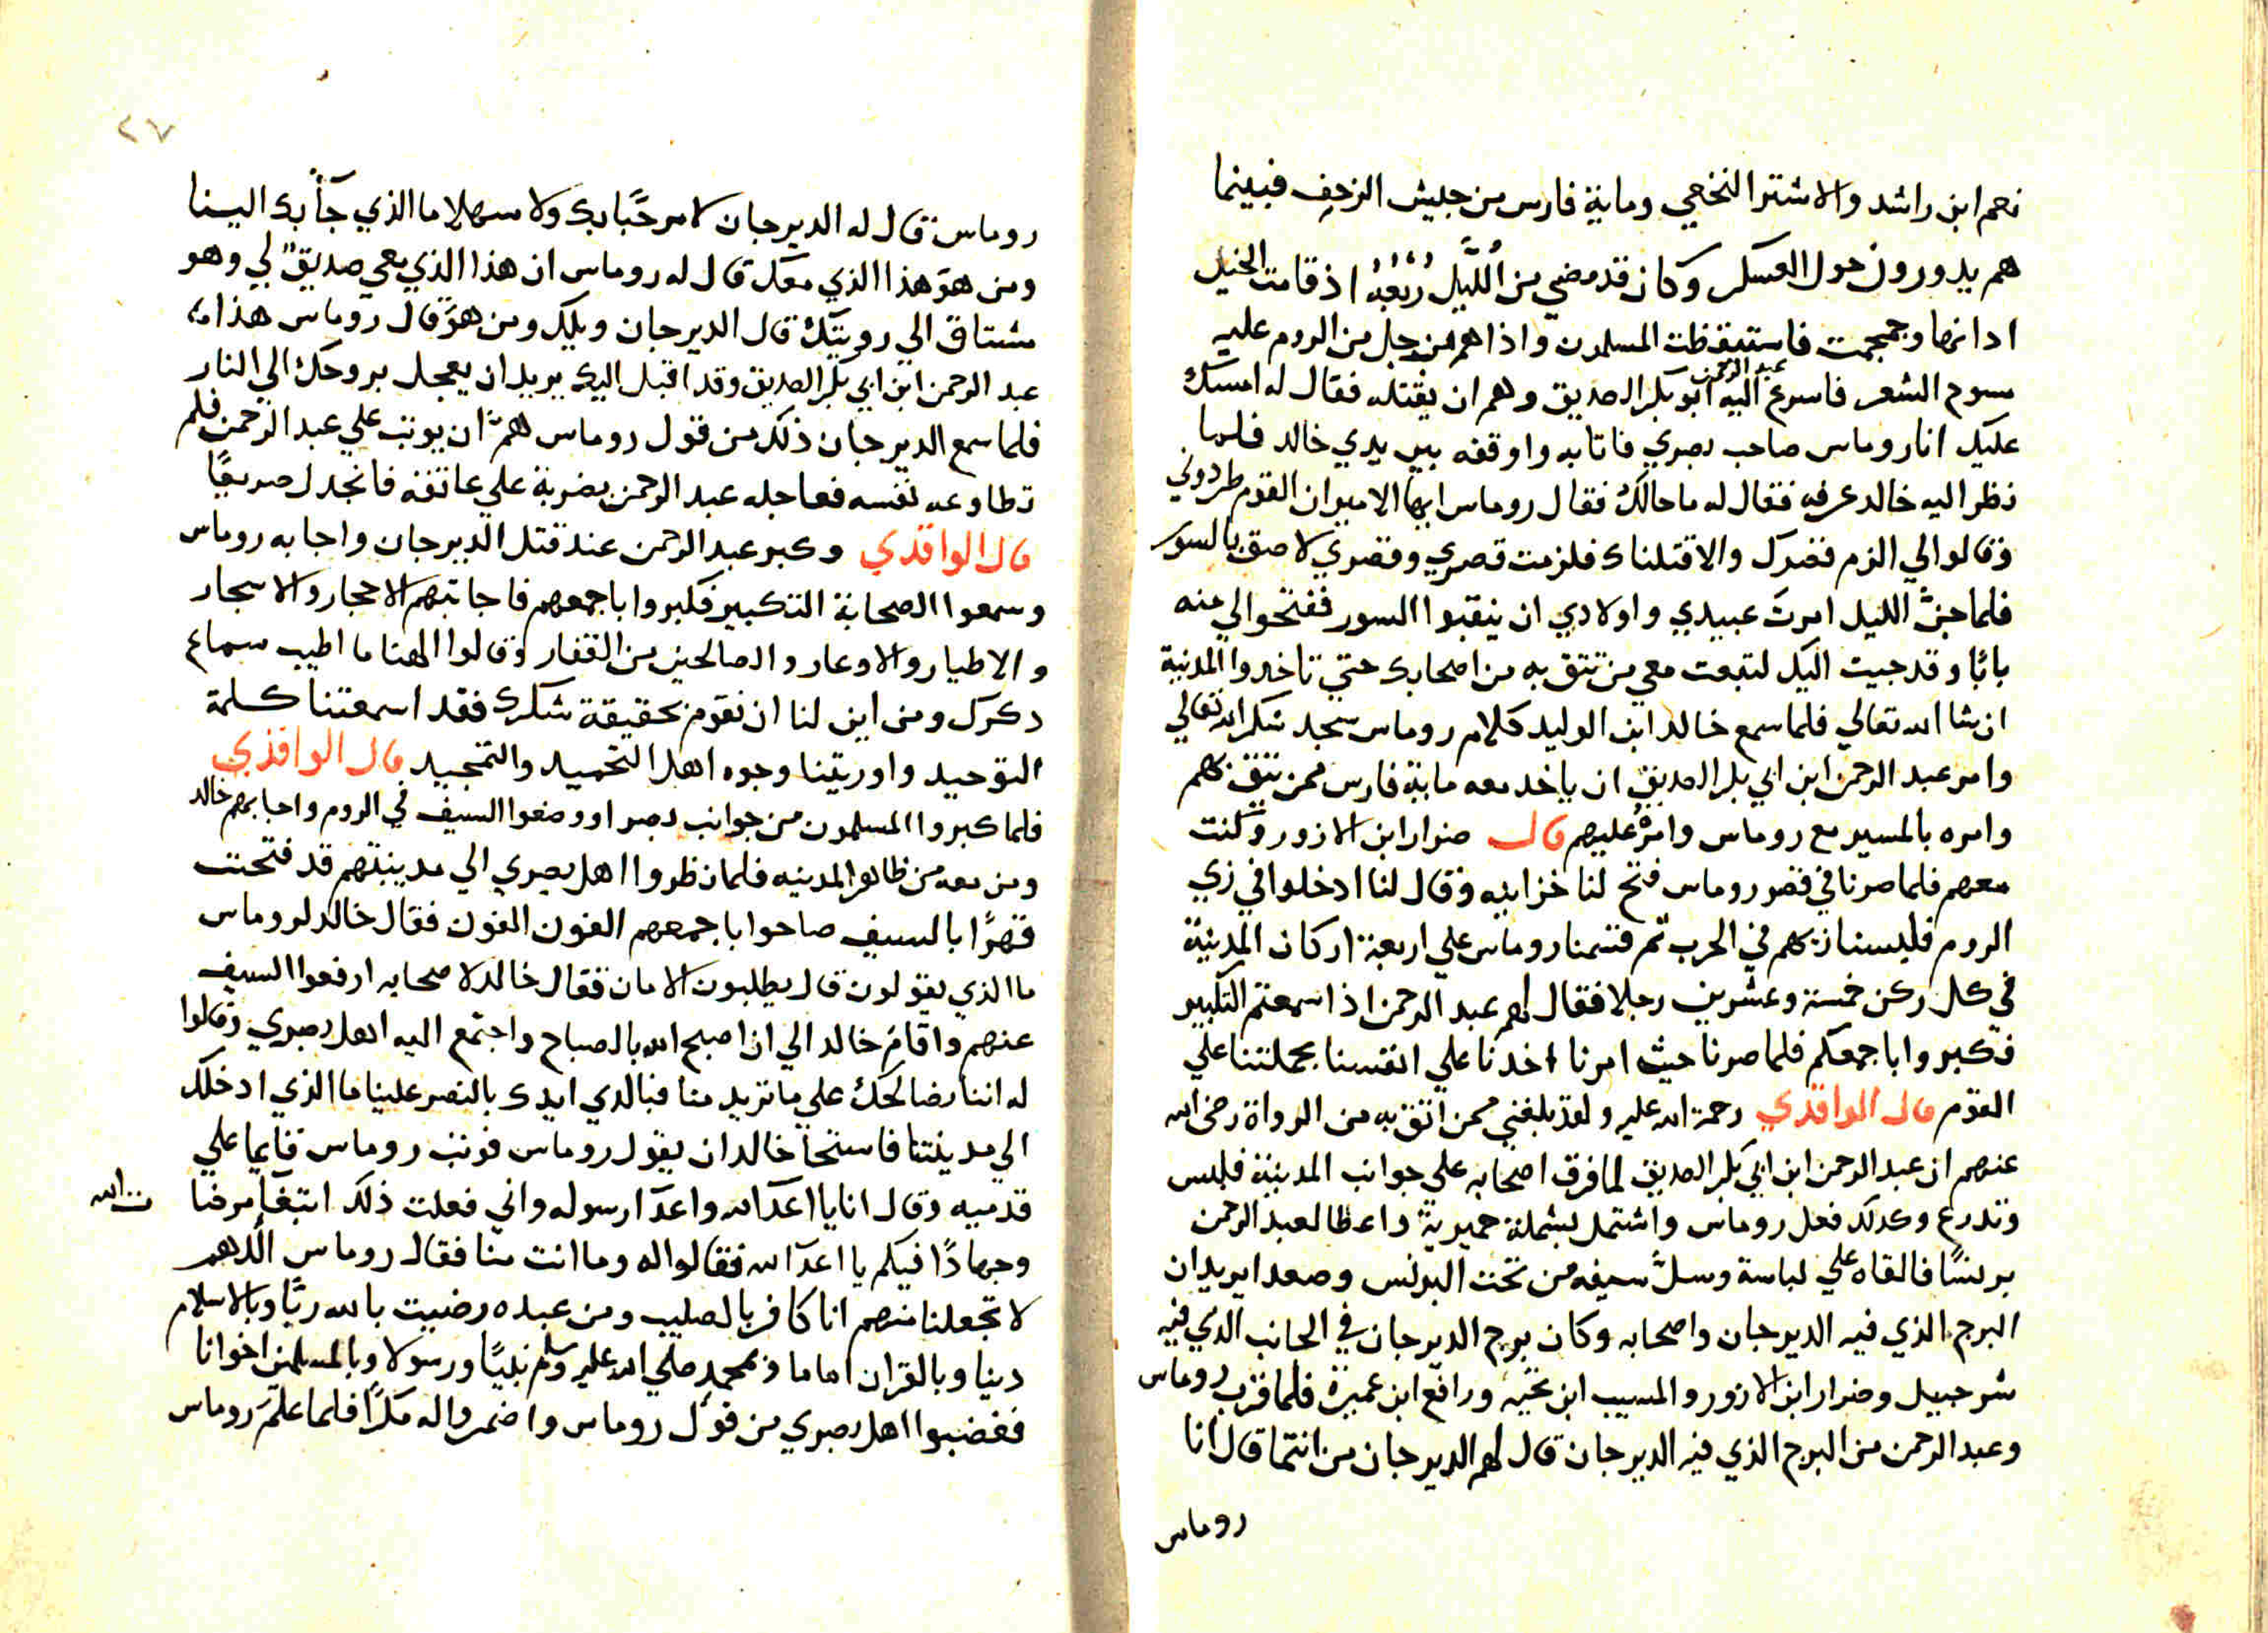 نعم ابن راشد والاشتر النخعي وماية فارس من جيش الزحف فبينما
هم يدورون حول العسكر وكان قد مضي من اللَّيل رُبْعُهُ اذ قامت الخيل
اذانها وحمجمت فاستيقظت المسلمون واذا هم برجل من الروم عليه
مسوح الشعر فاسرع اليه عبد الرحمن ابن ابو بكر الصديق وهم ان يقتله فقال له امسك
عليك انا روماس صاحب بصري فاتا به واوقفه بين يدي خالد فلما
نظر اليه خالد عرفه فقال له ما حالك فقال روماس ايها الامير ان القوم طردوني
وقالوا لي الزم قصرك والا قتلناك فلزمت قصري وقصري لاصق بالسور
فلما جنَّ الليل امرت عبيدي واولادي ان ينقبوا السور ففتحوا لي منه
بابًا وقد جيت اليك لتبعت معي من تتق به من اصحابك حتي تاخدوا المدينة
ان شا الله تعالي فلما سمع خالد ابن الوليد كلام روماس سجد شكرا لله تعالي
وامر عبد الرحمن ابن ابي بكر الصديق ان ياخد معه ماية فارس ممن يتق بهم
وامره بالمسير مع روماس وامرُه عليهم قال ضرار ابن الازور وكنت
معهم فلما صرنا في قصر روماس فتح لنا خزاينه وقال لنا ادخلوا في زي
الروم فلبسنا زيهم في الحرب ثم قسمنا روماس علي اربعة اركان المدينة
في كل ركن خمسة وعشرين رجلا فقال لهم عبد الرحمن اذا سمعتم التكبير
فكبروا باجمعكم فلما صرنا حيث امرنا اخدنا علي انفسنا بحملتنا علي
القوم قال الواقدي رحمة الله عليه ولقد بلغني ممن اتق به من الرواة رضى الله
عنهم ان عبد الرحمن ابن ابي بكر الصديق لما فرق اصحابه علي جوانب المدينة فلبس
وتدرع وكدلك فعل روماس واشتمل بشملة حميرية واعطا لعبد الرحمن
برنسًا فالقاه علي لباسة وسلَّ سيفه من تحت البرنس وصعدا يريدان
البرج الذي فيه الديرجان واصحابه وكان برج الديرجان في الجانب الذي فيه
شرحبيل وضرار ابن الازور والمسيب ابن نجيه ورافع ابن عميرة فلما قرب روماس
وعبد الرحمن من البرج الذي فيه الديرجان قال لهم الديرجان من انتما قال انا
روماس
٢٧
روماس قال له الديرجان لا مرحَبًا بك ولا سهلا ما الذي جآ بك الينا
ومن هو هذا الذي معك قال له روماس ان هذا الذي معي صديقٌ لي وهو
مشتاق الي رويتك قال الديرجان ويلك ومن هو قال روماس هذا
عبد الرحمن ابن ابي بكر الصديق وقد اقبل اليك يريد ان يعجل بروحك الي النار
فلما سمع الديرجان ذلك من قول روماس همَّ ان يوتب علي عبد الرحمن فلم
تطاوعه نفسه فعاجله عبد الرحمن بضربة علي عاتقه فانجدل صريعًا
قال الواقدي وكبر عبد الرحمن عند قتل الديرجان واجابه روماس
وسمعوا الصحابة التكبير فكبروا باجمعهم فاجابتهم الاحجار والاسجار
والاطيار والاوعار والصالحين من القفار وقالوا الهنا ما اطيب سماع
دكرك ومن اين لنا ان نقوم بحقيقة شكرك فقد اسمعتنا كلمة
التوحيد واوريتنا وجوه اهل التحميد والتمجيد قال الواقدي
فلما كبروا المسلمون من جوانب بصرا ووضعوا السيف في الروم واجابهم خالد
ومن معه من ظاهر المدينه فلما نظروا اهل بصري الي مدينتهم قد فتحت
قهرًا بالسيف صاحوا باجمعهم الغون الغون فقال خالد لروماس
ما الذي يقولون قال يطلبون الامان فقال خالد لاصحابه ارفعوا السيف
عنهم واقام خالد الي ان اصبح الله بالصباح واجتمع اليه اهل بصري وقالوا
له اننا نصالحك علي ما تريد منا فبالدي ايدك بالنصر علينا ما الذي ادخلك
الي مدينتنا فاستحا خالد ان يقول روماس فوتب روماس قايما علي
قدميه وقال انا يا اعدآ الله واعدآ رسوله واني فعلت ذلك ابتغآ مرضات الله
وجهادًا فيكم يا اعدآ الله فقالوا له وما انت منا فقال روماس اللهم
لا تجعلنا منهم انا كافر بالصليب ومن عبده رضيت بالله ربًّا وبالاسلام
دينا وبالقران اماما وبمحمدٍ صلي الله عليه وسلم نبيًا ورسولا وبالمسلمين اخوانا
فغضبوا اهل بصري من قول روماس واضمروا له مكرًا فلما علم روماس